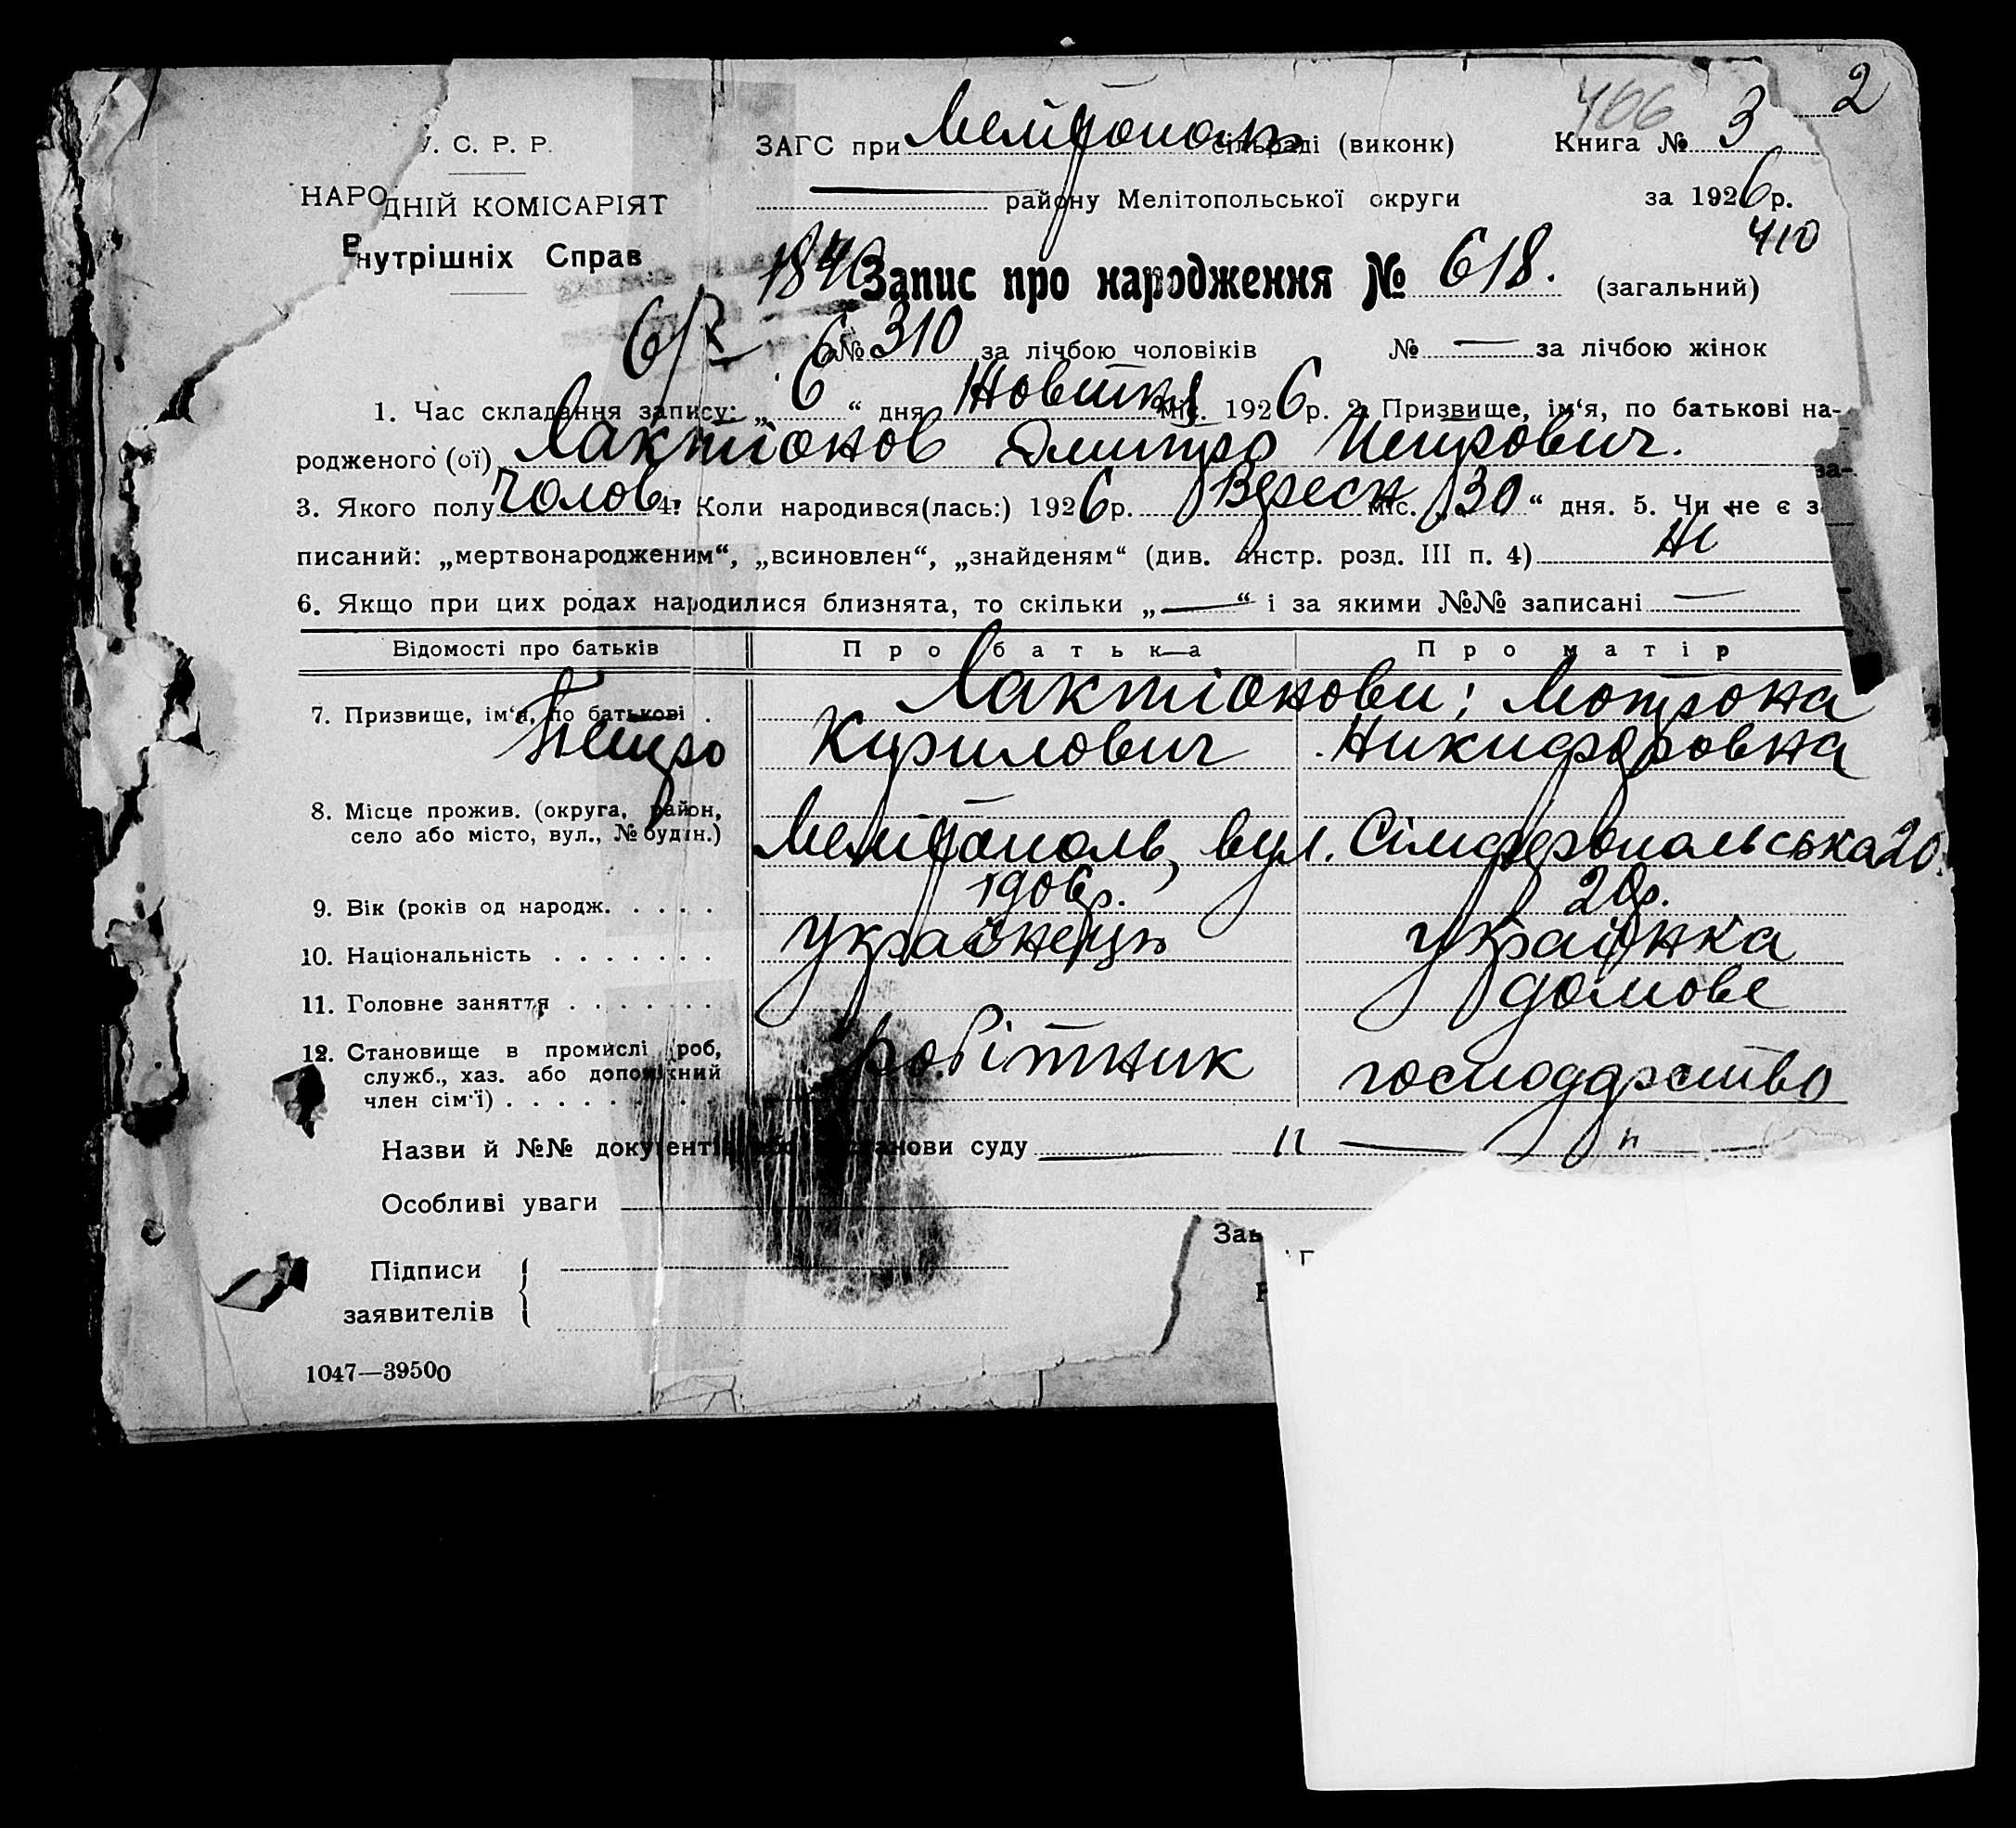 466 2
У. С. Р. Р. ЗАГС при Мелітополь сільраді (виконк) Книга № 3
НАРОДНІЙ КОМІСАРІЯТ району Мелітопольської округи за 1926 р.
Внутрішніх Справ 410
Запис про народження № 618. (загальний)
№ 310 за лічбою чоловіків № — за лічбою жінок
1. Час складання запису: „ 6 “ дня Жовтня міс. 1926 р. 2. Призвище, ім‘я, по батькові на-
родженого (ої) Лактіонов Дмитро Петрович. за-
3. Якого полу чолов. 4. Коли народився(лась:) 1926 р. Вересн міс. 30 “ дня. 5. Чи не є з
писаний: „мертвонародженим“, „всиновлен“, „знайденям“ (див. інстр. розд. III п. 4) Ні
6. Якщо при цих родах народилися близнята, то скільки „ — “ і за якими №№ записані —
Відомості про батьків Про батька Про матір
7. Призвище, ім‘я, по батькові . Лактіонови; Мотрона
Петро Кирилович Никифоровна
8. Місце прожив. (округа, район,
село або місто, вул., № будін.) Мелітополь, вул. Сімферопольська 20.
9. Вік (років од народж. . . . . 1906 р. 20 р.
10. Національність . . . . . . . українець українка
11. Головне заняття . . . . . . . домове
12. Становище в промислі роб,
служб., хаз. або допоміжний робітник господарство
член сім‘ї) . . . . . . . .
Назви й №№ документів або постанови суду — „ — „ —
Особливі уваги
Зав
Г
Підписи
заявителів
1047—39500